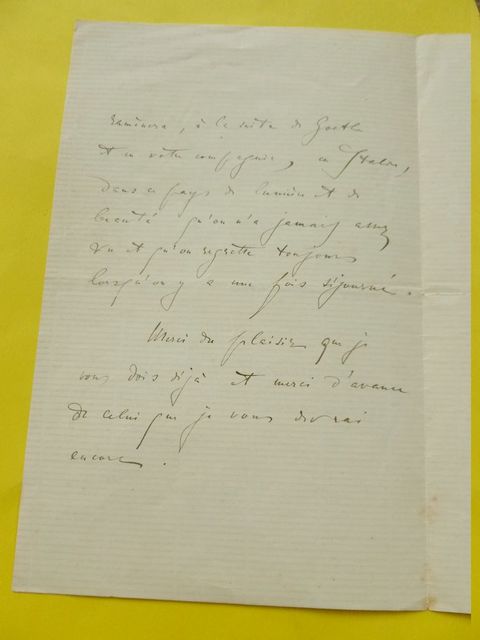 ramènera, à la suite de Goethe
et en votre compagnie, en Italie,
dans ce pays de lumière et de
beauté qu'on n'a jamais assez
vu et qu'on regrette toujours
lorsqu'on y a une fois séjourné.
Merci du plaisir que je
vous dois déjà et merci d'avance
de celui que je vous devrai
encore.